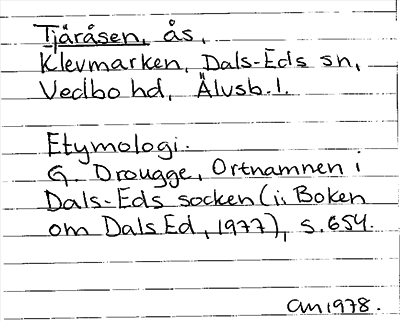 Tjäråsen, ås,
Klevmarken, Dals-Eds sn,
Vedbo hd, Älvsb. l.
Etymologi.
G. Drougge, Ortnamnen i
Dals-Eds socken (i: Boken
om Dals Ed, 1977), s. 654.
AM 1978.